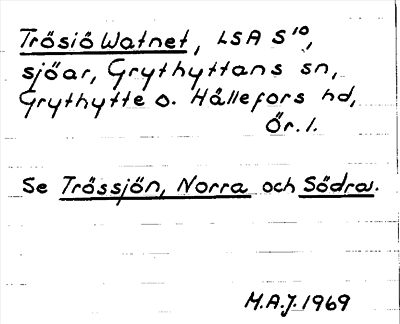 Trösiö Watnet, LSA S¹⁰,
sjöar, Grythyttans sn,
Grythytte o. Hällefors hd,
Ör. l.
Se Trössjön, Norra och Södra.
M.A.J. 1969